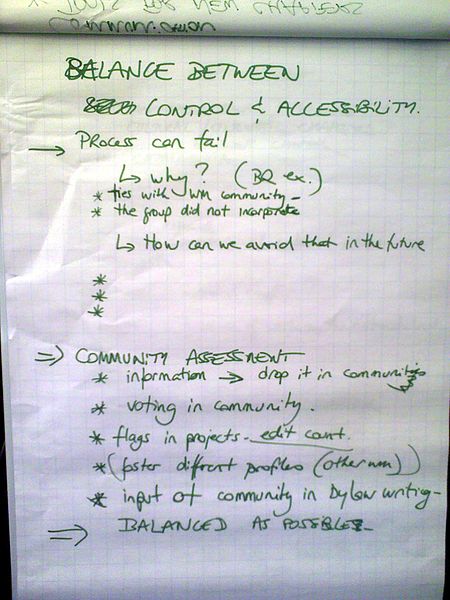 BALANCE BETWEEN
CONTROL & ACCESSIBILITY.
→ Process can fail
↳ why? (BQ ex.)
* ties with wm community -
* the group did not incorporate
↳ How can we avoid that in the future
*
*
*
⇒ COMMUNITY ASSESSMENT
* information → drop it in communities
* voting in community.
* flags in projects - edit count.
* (foster different profiles (other wm))
* input of community in bylaw writing -
⇒ BALANCED AS POSSIBLE -